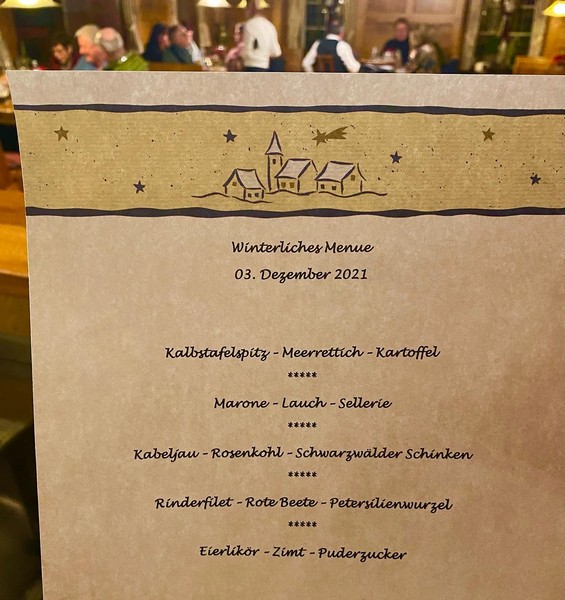 Winterliches Menue
03. Dezember 2021
Kalbstafelspitz - Meerrettich - Kartoffel
*****
Marone - Lauch - Sellerie
*****
Kabeljau - Rosenkohl - Schwarzwälder Schinken
*****
Rinderfilet - Rote Beete - Petersilienwurzel
*****
Eierlikör - Zimt - Puderzucker